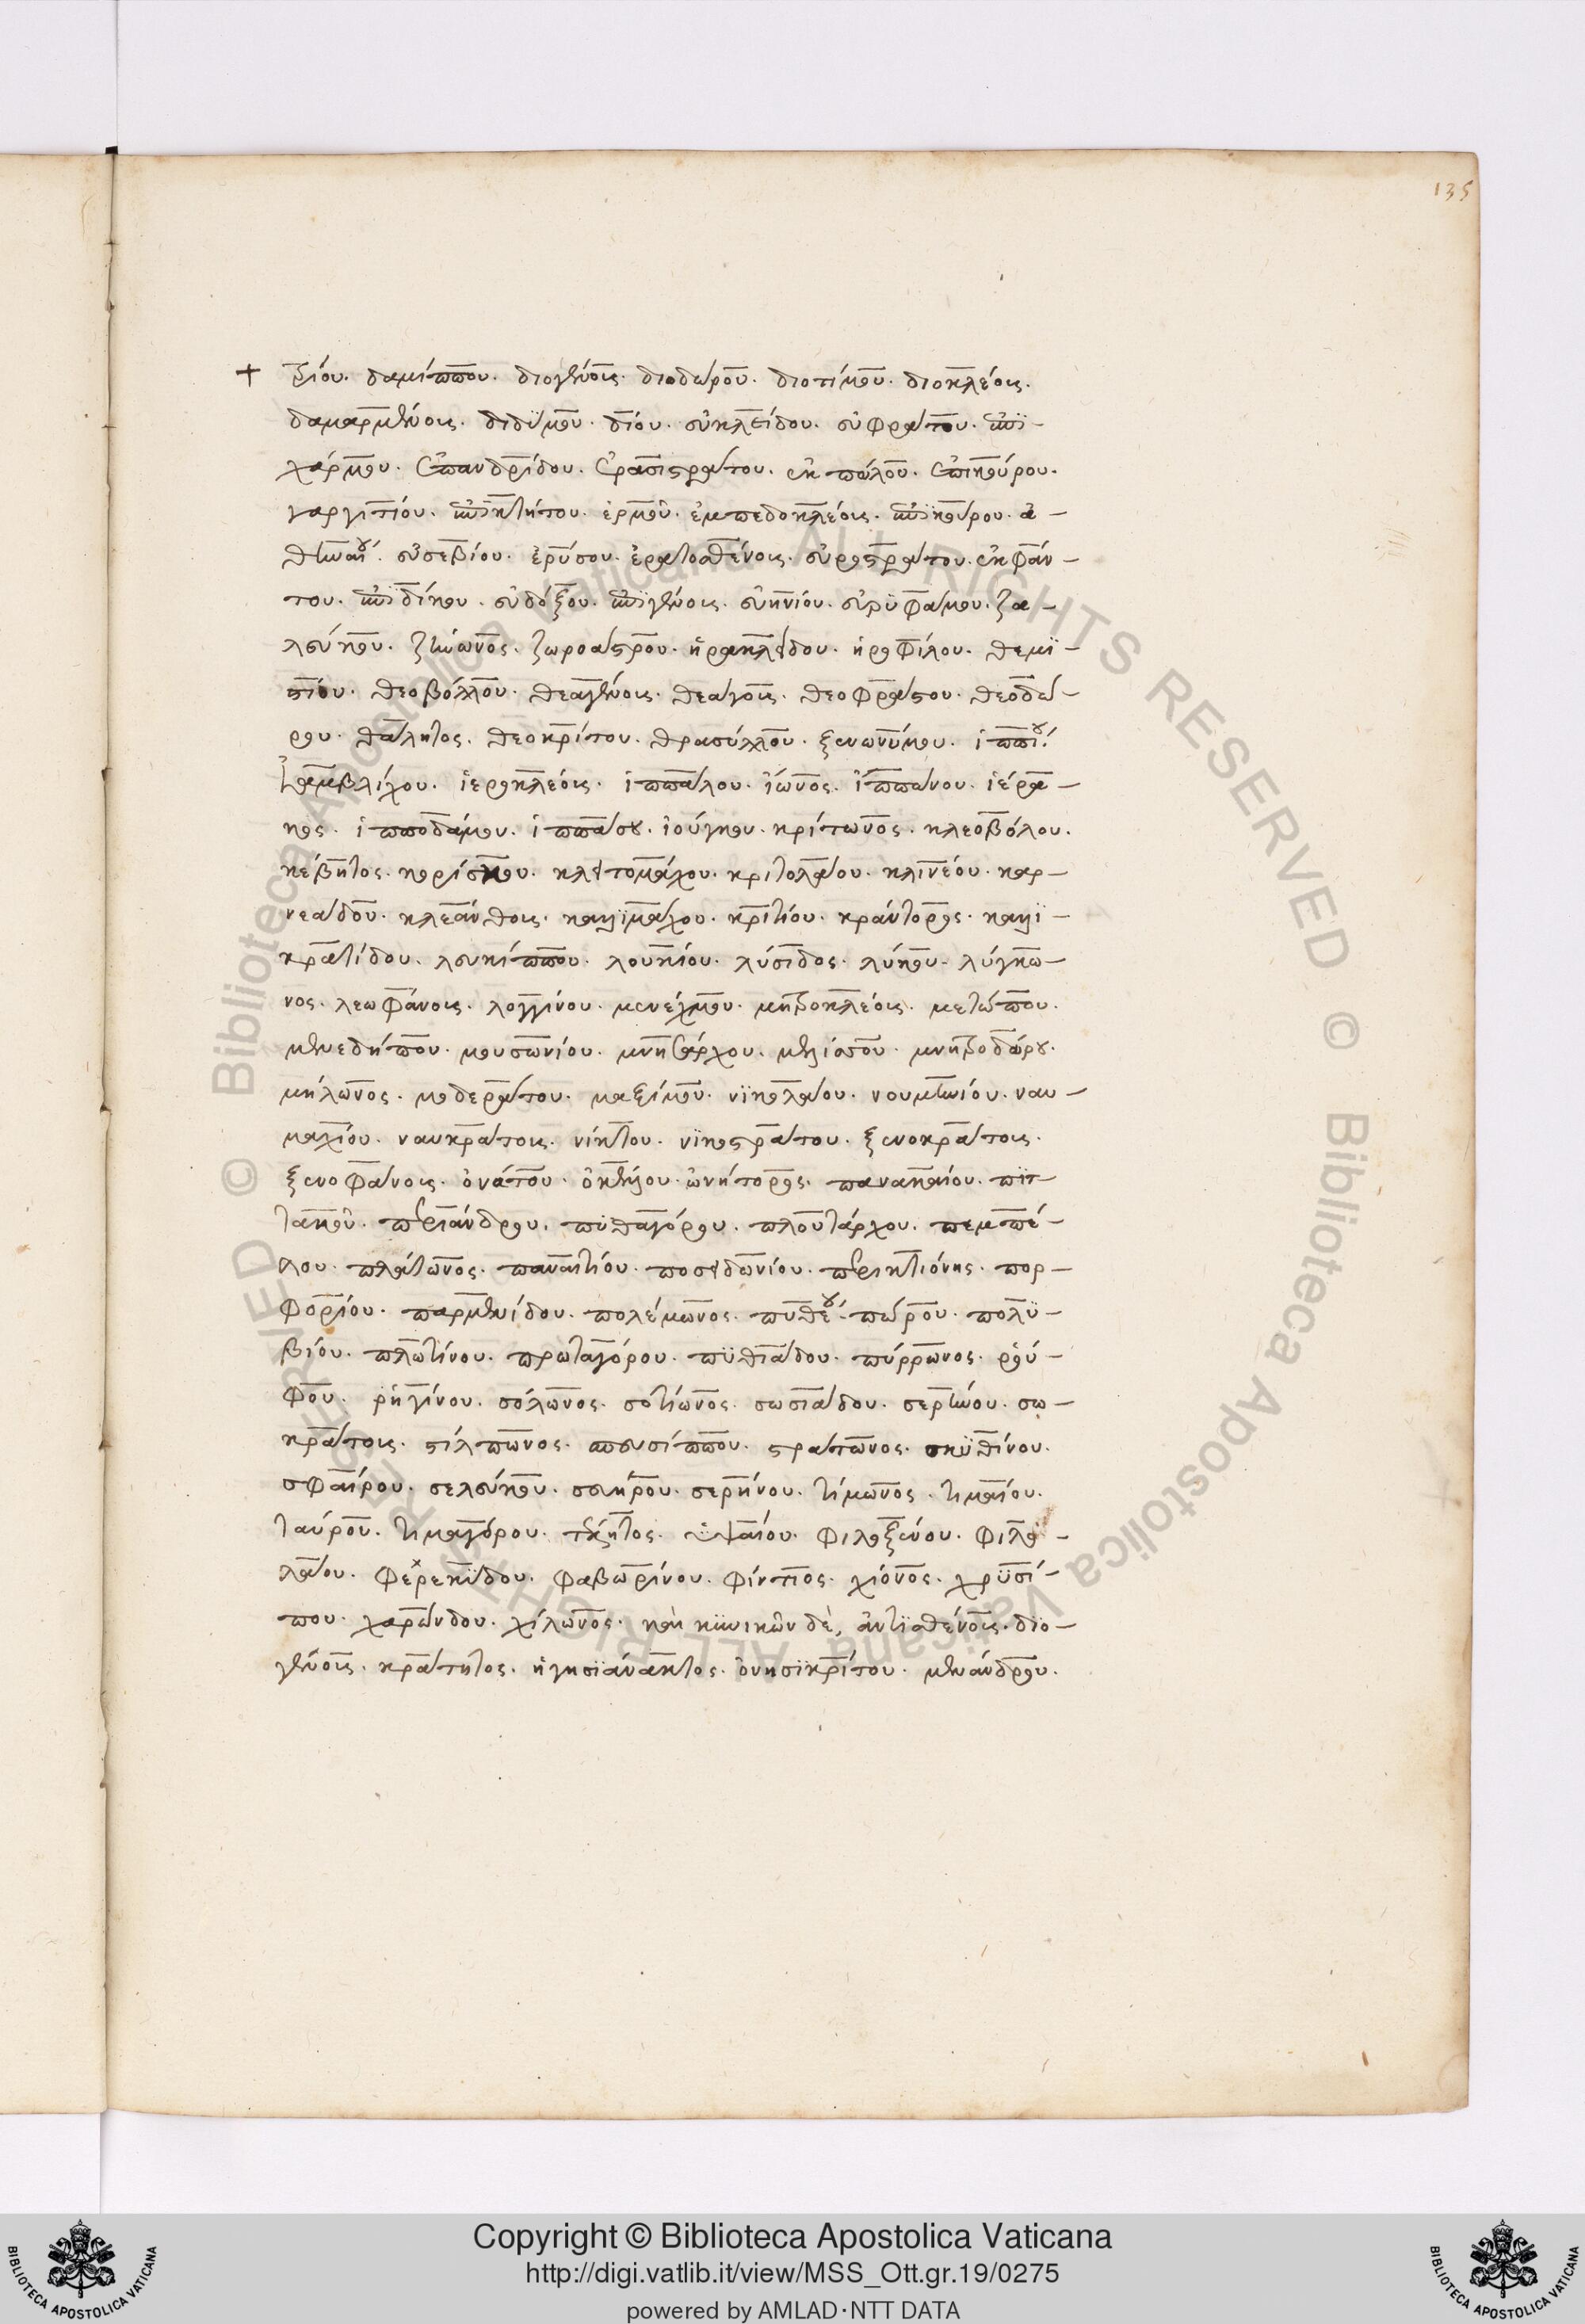 135
+ ξίου. δαμίππου. διογένους. διοδώρου. διοτίμου. διοκλέους.
δαμαρμένους. διδύμου. δίου. εὐκλείδου. εὐφράτου. ἐπι-
χάρμου. ἐπανδρίδου. ἐρασιστράτου. ἐκπώλου. ἐπικούρου.
γαργιτίου. ἐπικτήτου. ἑρμοῦ. ἐμπεδοκλέους. ἐπικούρου. ἀ-
θηναίου. εὐσεβίου. ἐρύσου. ἐρατοσθένους. εὐρυστράτου. ἐκφάν-
του. ἐπιδίκου. εὐδόξου. ἐπιγένους. εὐηνίου. εὐρυφάμου. ζα-
λεύκου. ζήνωνος. ζωροάστρου. ἡρακλείδου. ἡροφίλου. θεμι-
στίου. θεοβόλλου. θεαγένους. θεάγους. θεοφράστου. θεοδώ-
ρου. θάλητος. θεοκρίτου. θρασύλλου. ξενωνύμου. ἱππίου.
ἰαμβλίχου. ἱεροκλέους. ἱππάλου. ἴωνος. ἱππάνου. ἱέρα-
κος. ἱπποδάμου. ἱππάσου. ἰούγκου. κρίτωνος. κλεοβόλου.
κέβητος. καρίσκου. κλειτομάχου. κριτολάου. κλινέου. καρ-
νεάδου. κλεάνθους. καλλιμάχου. κριτίου. κράντορος. καλλι-
κρατίδου. λευκίππου. λουκίου. λύσιδος. λύκου. λύγκω-
νος. λεωφάνους. λογγίνου. μενεχμου. μητροκλέους. μετώπου.
μενεδήμου. μουσωνίου. μνησάρχου. μελίσσου. μνητροδώρου.
μήλωνος. μοδεράτου. μαξίμου. νικολάου. νουμηνίου. ναυ-
μαχίου. ναυκράτους. νίκτου. νικοστράτου. ξενοκράτους.
ξενοφάνους. ὀνάτου. ὀκέλλου. ὠνήτορος. πανακαίου. πιτ-
τακοῦ. περιάνδρου. πυθαγόρου. πλουτάρχου. πεμπέ-
λου. πλάτωνος. παναιτίου. ποσειδωνίου. περικτιόνης. πορ-
φυρίου. παρμενίδου. πολέμωνος. πυθέου. πώρου. πολυ-
βίου. πλωτίνου. πρωταγόρου. πυθιάδου. πύρρωνος. ῥού-
φου. ῥηγίνου. σόλωνος. σοτίωνος. σωσιάδου. σερήνου. σω-
κράτους. στίλπωνος. σπευσίππου. στράτωνος. σκυθίνου.
σφαίρου. σελεύκου. σευήρου. σερήνου. τίμωνος. τιμαίου.
ταύρου. τιμαγόρου. τέλητος. ὑψαίου. φιλοξένου. φιλο-
λάου. φερεκύδου. φαβωρίνου. φίντιος. χίονος. χρυσί-
που. χαρώνδου. χίλωνος. καὶ κυνικῶν δὲ, ἀντισθένους. διο-
γένους. κράτητος. ἡγησιάνακτος. ὀνησικρίτου. μενάνδρου.
Copyright © Biblioteca Apostolica Vaticana
http://digi.vatlib.it/view/MSS_Ott.gr.19/0275
powered by AMLAD·NTT DATA